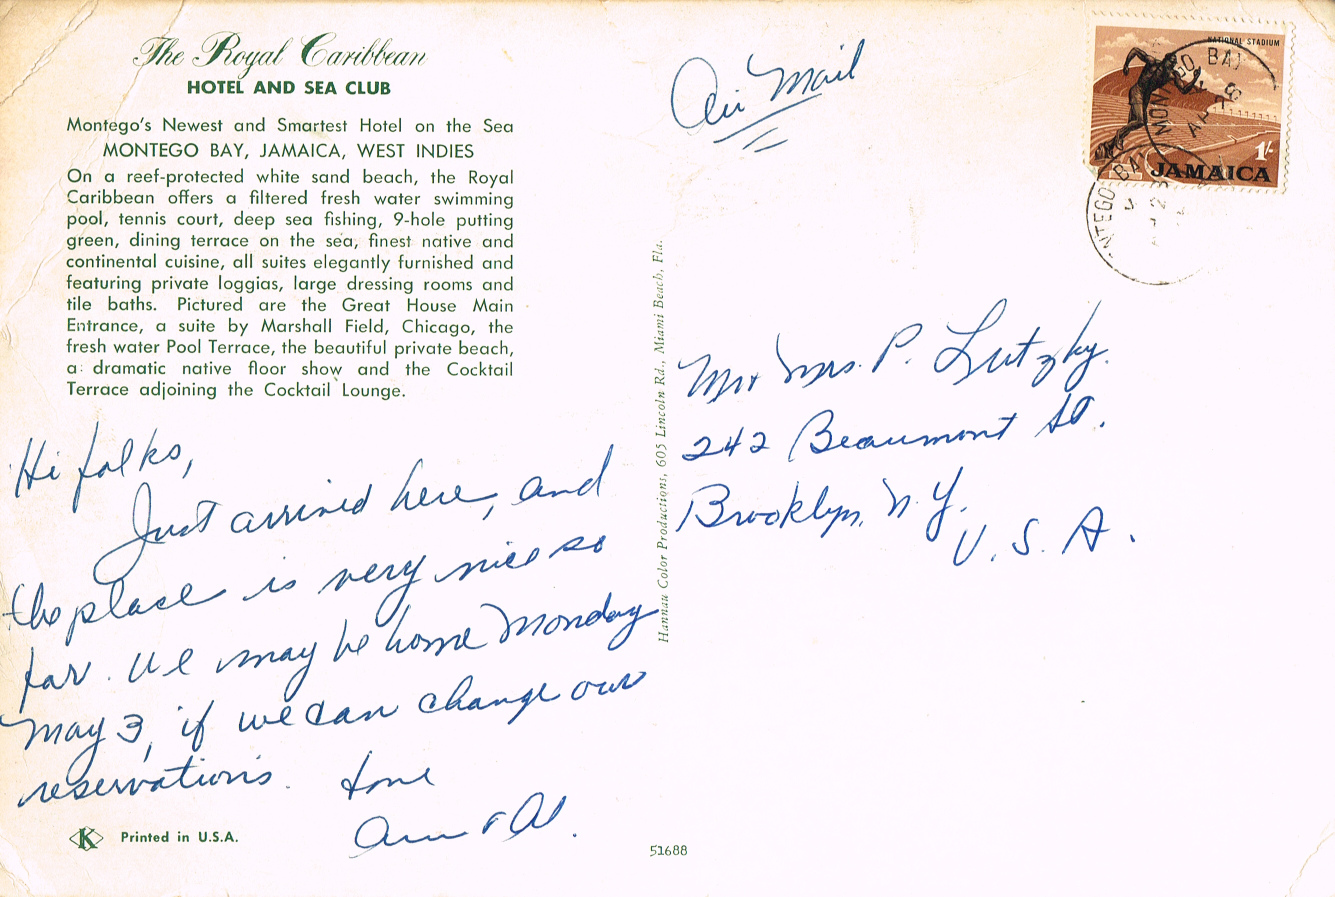 The Royal Caribbean
HOTEL AND SEA CLUB
Montego's Newest and Smartest Hotel on the Sea
MONTEGO BAY, JAMAICA, WEST INDIES
On a reef-protected white sand beach, the Royal
Caribbean offers a filtered fresh water swimming
pool, tennis court, deep sea fishing, 9-hole putting
green, dining terrace on the sea, finest native and
continental cuisine, all suites elegantly furnished and
featuring private loggias, large dressing rooms and
tile baths. Pictured are the Great House Main
Entrance, a suite by Marshall Field, Chicago, the
fresh water Pool Terrace, the beautiful private beach,
a dramatic native floor show and the Cocktail
Terrace adjoining the Cocktail Lounge.
Hi folks,
Just arrived here, and
the place is very nice so
far. We may be home Monday
May 3, if we can change our
reservations. Love
Ann & Al.
K
Printed in U.S.A.
51688
Hannau Color Productions, 605 Lincoln Rd., Miami Beach, Fla.
Air Mail
NATIONAL STADIUM
1/-
JAMAICA
MONTEGO BAY
Mr & Mrs. P. Lutzky.
242 Beaumont St.
Brooklyn, N.Y.
U.S.A.